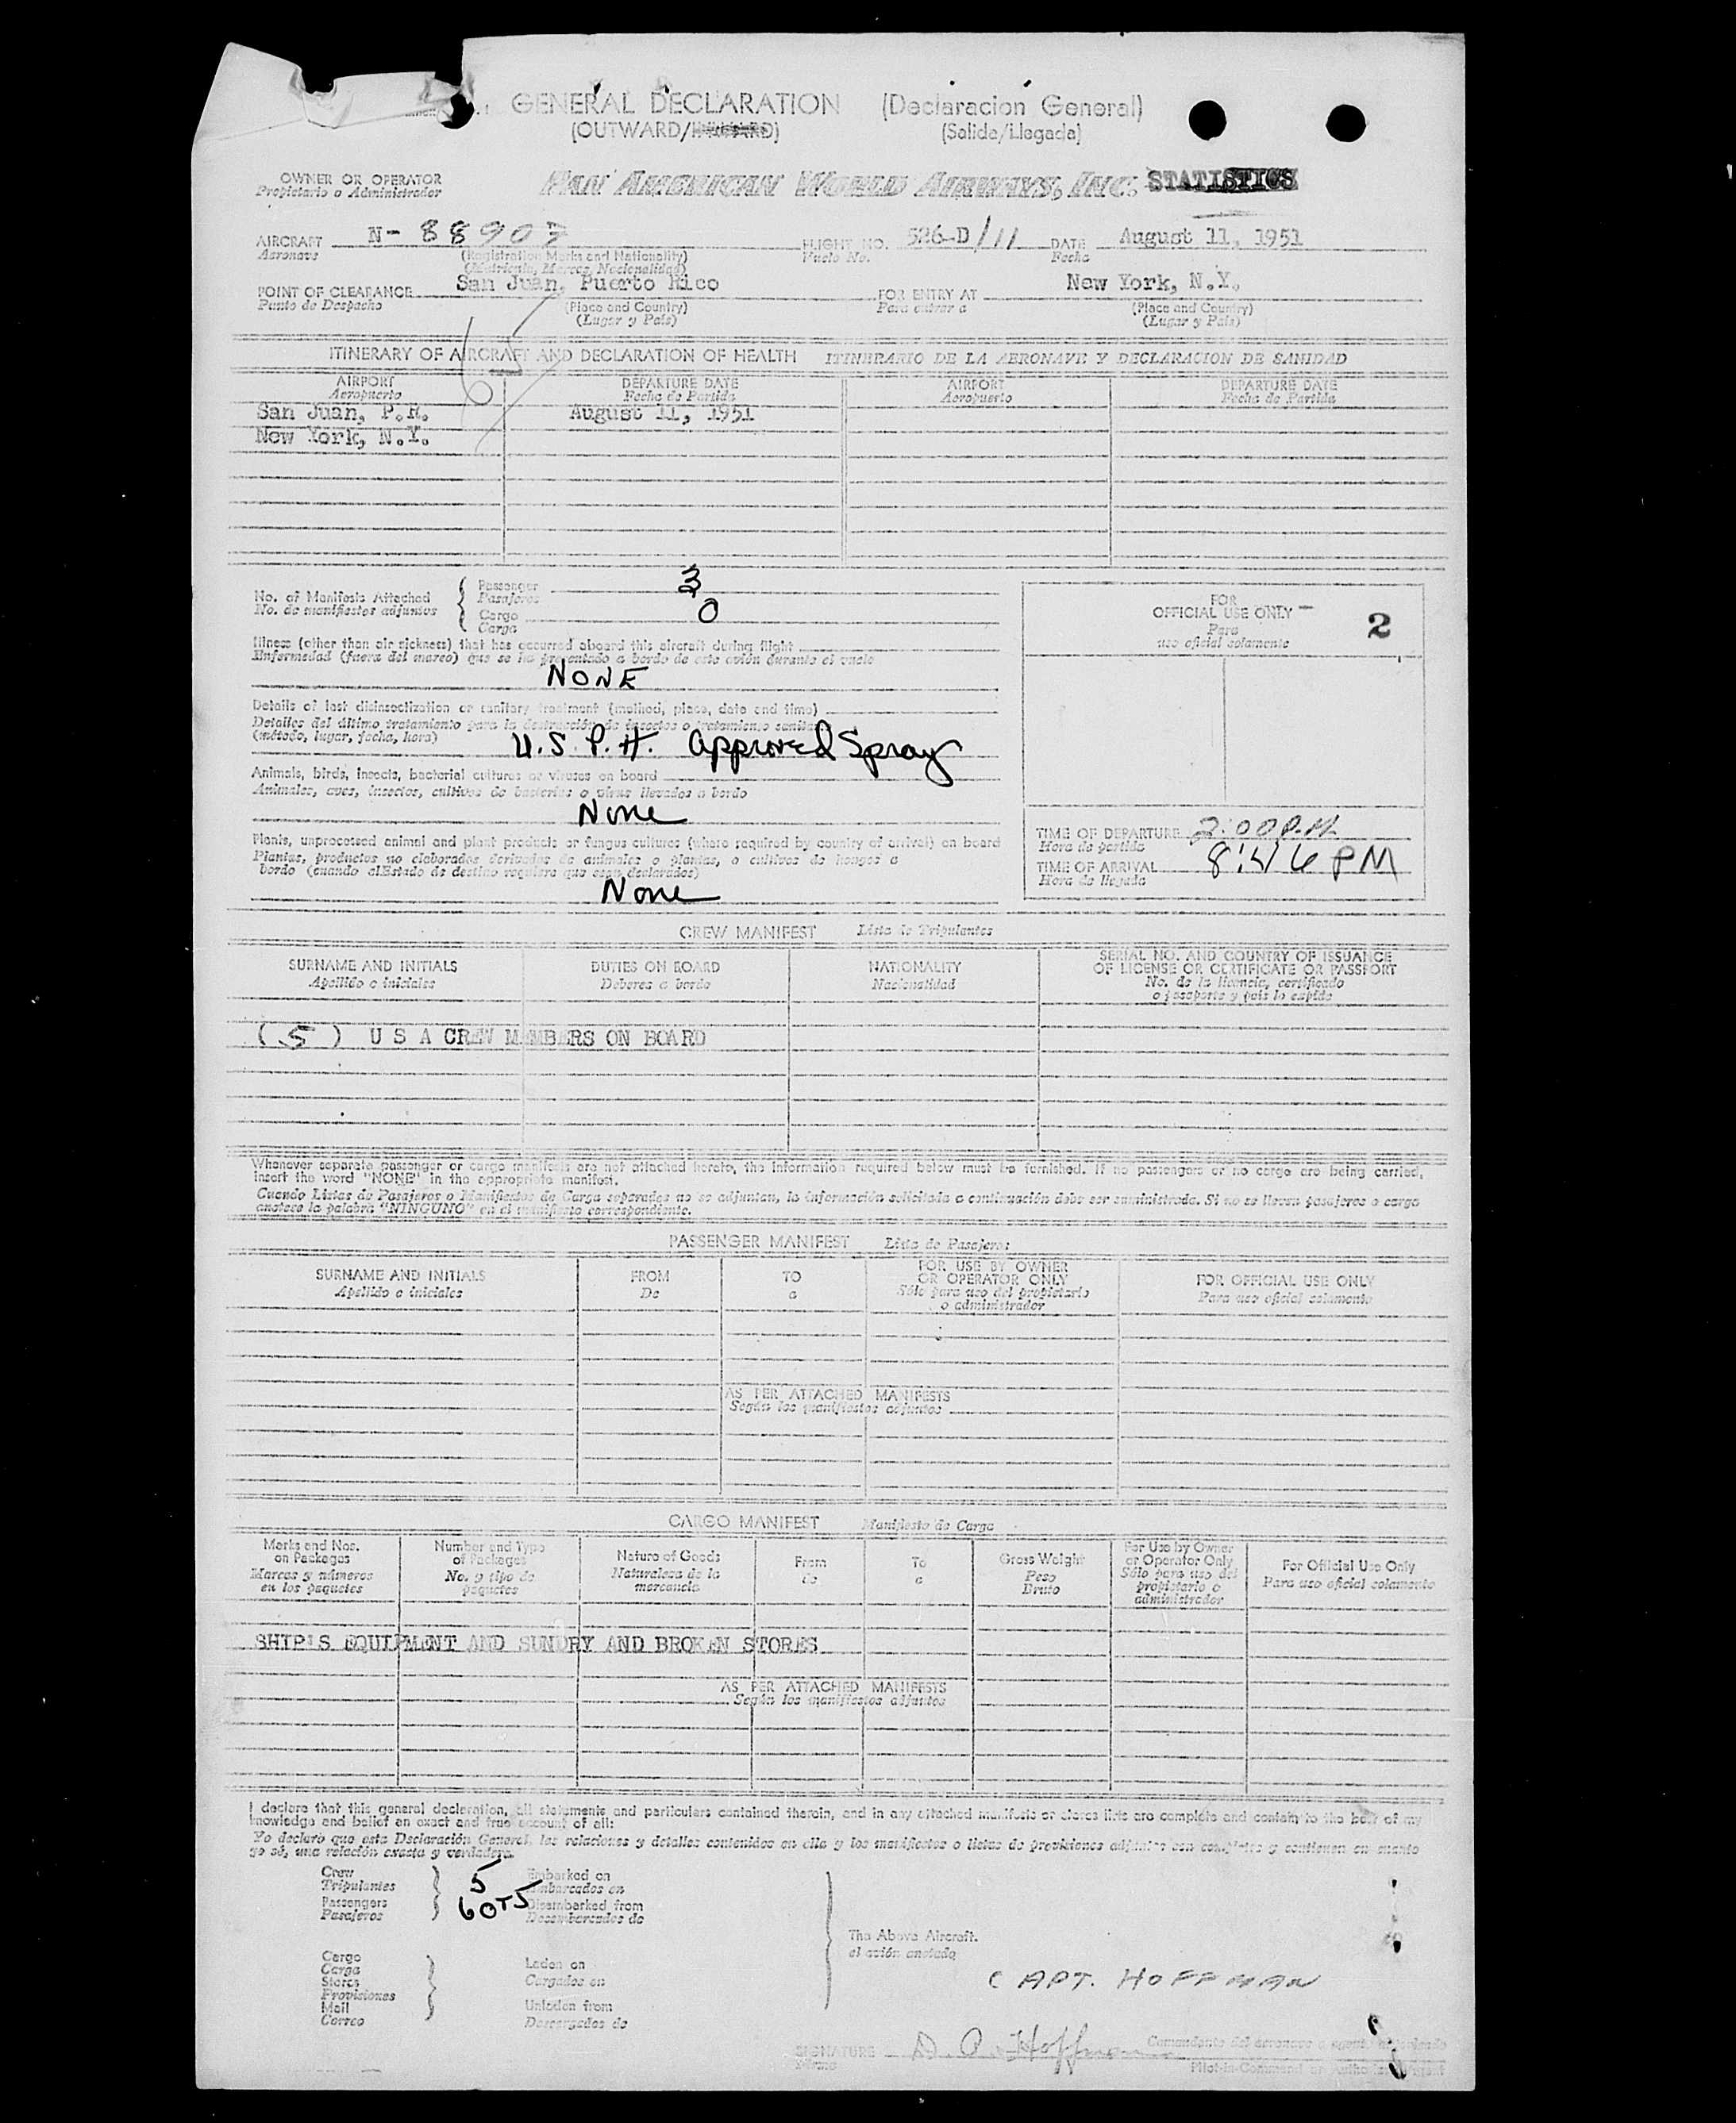 GENERAL DECLARATION (Declaracion General)
(OUTWARD/INWARD) (Salida/Llegada)
OWNER OR OPERATOR PAN AMERICAN WORLD AIRWAYS, INC. STATISTICS
Propietario o Administrador
AIRCRAFT N-88903 FLIGHT NO. 526-D/11 DATE August 11, 1951
Aeronave (Registration Marks and Nationality) Vuelo No. Fecha
(Matricula, Marcas, Nacionalidad)
POINT OF CLEARANCE San Juan, Puerto Rico FOR ENTRY AT New York, N.Y.
Punto de Despacho (Place and Country) Para entrar a (Place and Country)
(Lugar y Pais) (Lugar y Pais)
65
ITINERARY OF AIRCRAFT AND DECLARATION OF HEALTH ITINERARIO DE LA AERONAVE Y DECLARACION DE SANIDAD
AIRPORT DEPARTURE DATE AIRPORT DEPARTURE DATE
Aeropuerto Fecha de Partida Aeropuerto Fecha de Partida
San Juan, P.R. August 11, 1951
New York, N.Y.
No. of Manifests Attached Passenger 3
No. de manifiestos adjuntos Pasajeros
Cargo 0
Carga
FOR
OFFICIAL USE ONLY 2
Para
uso oficial solamente
Illness (other than air sickness) that has occurred aboard this aircraft during flight
Enfermedad (fuera del mareo) que se ha presentado a bordo de este avión durante el vuelo
NONE
Details of last disinsectization or sanitary treatment (method, place, date and time)
Detalles del último tratamiento para la destrucción de insectos o tratamiento sanitario
(método, lugar, fecha, hora)
U.S.P.H. Approved Spray
Animals, birds, insects, bacterial cultures or viruses on board
Animales, aves, insectos, cultivos de bacterias o virus llevados a bordo
None
Plants, unprocessed animal and plant products or fungus cultures (where required by country of arrival) on board
Plantas, productos no elaborados derivados de animales o plantas, o cultivos de hongos a
bordo (cuando el Estado de destino requiera que sean declarados)
None
TIME OF DEPARTURE 2:00 P.M.
Hora de partida
TIME OF ARRIVAL 8:46 PM
Hora de llegada
CREW MANIFEST Lista de Tripulantes
SURNAME AND INITIALS DUTIES ON BOARD NATIONALITY SERIAL NO. AND COUNTRY OF ISSUANCE
OF LICENSE OR CERTIFICATE OR PASSPORT
Apellido e iniciales Deberes a bordo Nacionalidad No. de la licencia, certificado
o pasaporte y pais lo expide
( 5 ) U S A CREW MEMBERS ON BOARD
Whenever separate passenger or cargo manifests are not attached hereto, the information required below must be furnished. If no passengers or no cargo are being carried,
insert the word "NONE" in the appropriate manifest.
Cuando Listas de Pasajeros o Manifiestos de Carga separados no se adjuntan, la información solicitada a continuación debe ser suministrada. Si no se llevan pasajeros o carga
anotese la palabra "NINGUNO" en el manifiesto correspondiente.
PASSENGER MANIFEST Lista de Pasajeros
SURNAME AND INITIALS FROM TO FOR USE BY OWNER
OR OPERATOR ONLY FOR OFFICIAL USE ONLY
Apellido e iniciales De a Sólo para uso del propietario
o administrador Para uso oficial solamente
AS PER ATTACHED MANIFESTS
Según los manifiestos adjuntos
CARGO MANIFEST Manifiesto de Carga
Marks and Nos.
on Packages
Marcas y números
en los paquetes
Number and Type
of Packages
No. y tipo de
paquetes
Nature of Goods
Naturaleza de la
mercancia
From
de
To
a
Gross Weight
Peso
Bruto
For Use by Owner
or Operator Only
Sólo para uso del
propietario o
administrador
For Official Use Only
Para uso oficial solamente
SHIP'S EQUIPMENT AND SUNDRY AND BROKEN STORES
AS PER ATTACHED MANIFESTS
Según los manifiestos adjuntos
I declare that this general declaration, all statements and particulars contained therein, and in any attached manifests or stores lists are complete and contain to the best of my
knowledge and belief an exact and true account of all:
Yo declaro que esta Declaración General, las relaciones y detalles contenidos en ella y los manifiestos o listas de provisiones adjuntos son completos y contienen en cuanto
yo sé, una relación exacta y verdadera.
Crew 5 Embarked on
Tripulantes Embarcados en
Passengers 60+5 Disembarked from
Pasajeros Desembarcados de
The Above Aircraft.
el avión anotado
Cargo
Carga Laden on
Stores Cargados en
Provisiones
Mail Unladen from
Correo Descargados de
CAPT. HOFFMAN
SIGNATURE D. A. Hoffman
Firma
Comandante del aeronave o agente autorizado
Pilot-in-Command or Authorized Agent